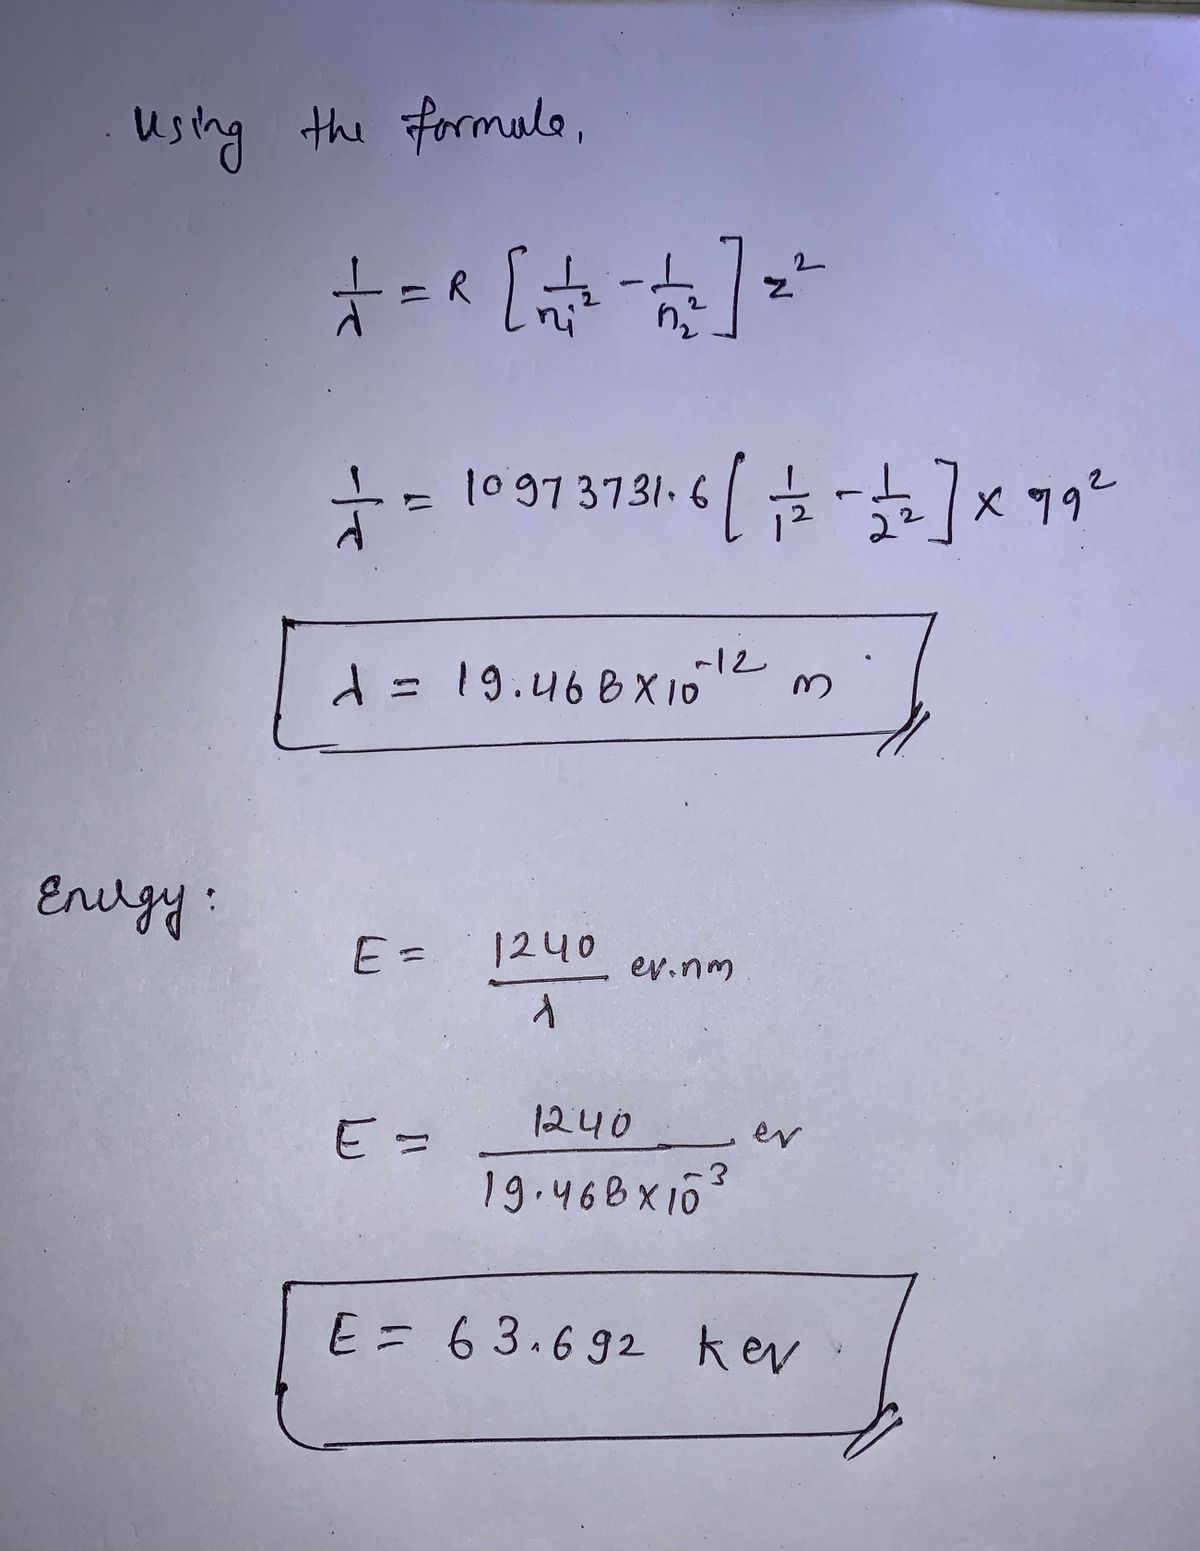 Using the formula,
1/λ = R [1/n₁² - 1/n₂²] z²
1/λ = 10973731.6 [1/1² - 1/2²] × 79²
λ = 19.468 × 10⁻¹² m
Energy:
E = 1240/λ ev.nm
E = 1240/19.468 × 10⁻³ ev
E = 63.692 kev